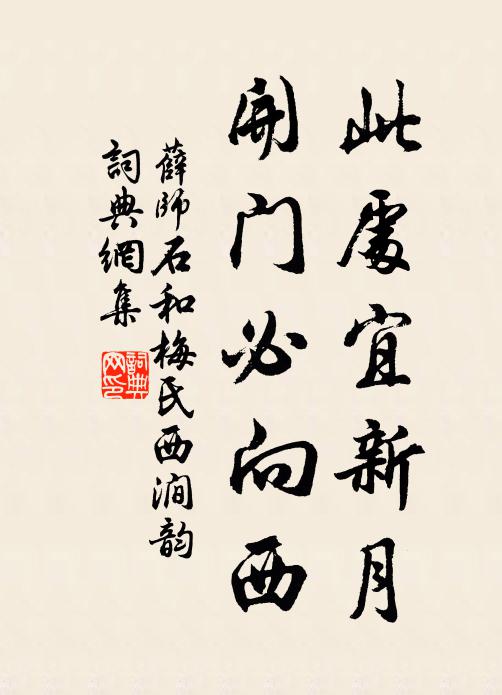 此處宜新月
開門必向西
薛師石和梅氏西澗韵
詞典網集
詞典網印